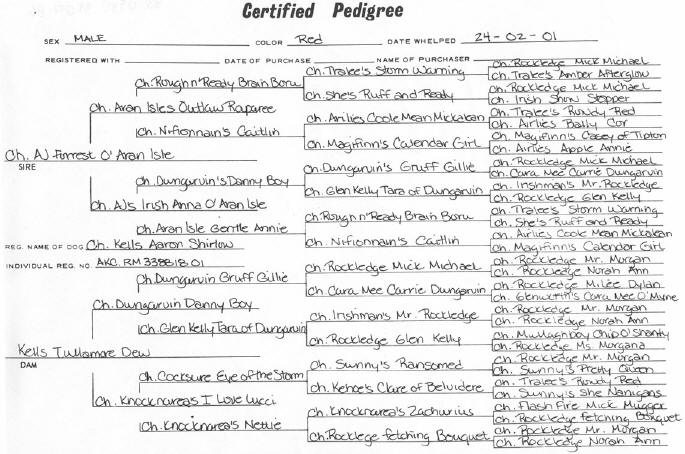 Certified Pedigree
SEX MALE COLOR Red DATE WHELPED 24-02-01
REGISTERED WITH DATE OF PURCHASE NAME OF PURCHASER
Ch. Rockledge Mick Michael
Ch. Tralee's Storm Warning
Ch. Tralee's Amber Afterglow
Ch. Rough n' Ready Brain Boru
Ch. Rockledge Mick Michael
Ch. She's Ruff and Ready
Ch. Irish Show Stopper
Ch. Aran Isles Outlaw Raparee
Ch. Tralee's Rowdy Red
Ch. Airlies Coole Mean Mickalean
Ch. Airlies Bally Cor
Ch. N-fionnain's Caitlin
Ch. Magifinn's Casey of Tipton
Ch. Magifinn's Calendar Girl
Ch. Airlies Apple Annie
Ch. AJ Forrest O' Aran Isle
SIRE
Ch. Rockledge Mick Michael
Ch. Dungarvin's Gruff Gillie
Ch. Cara Mee Carrie Dungarvin
Ch. Dungarvin's Danny Boy
Ch. Irishman's Mr. Rockledge
Ch. Glen Kelly Tara of Dungarvin
Ch. Rockledge Glen Kelly
Ch. AJs Irish Anna O' Aran Isle
Ch. Tralee's Storm Warning
Ch. Rough n' Ready Brain Boru
Ch. She's Ruff and Ready
Ch. Aran Isle Gentle Annie
Ch. Airlies Coole Mean Mickalean
Ch. N-fionnain's Caitlin
Ch. Magifinn's Calendar Girl
REG. NAME OF DOG Ch. Kells Aaron Shirlow
INDIVIDUAL REG. NO. AKC. RM 338618 01
Ch. Rockledge Mr. Morgan
Ch. Rockledge Mick Michael
Ch. Rockledge Norah Ann
Ch. Dungarvin Gruff Gillie
Ch. Rockledge Milee Dylan
Ch. Cara Mee Carrie Dungarvin
Ch. Cara Mee O'Myne
Ch. Dungarvin Danny Boy
Ch. Rockledge Mr. Morgan
Ch. Irishman's Mr. Rockledge
Ch. Rockledge Norah Ann
Ch. Glen Kelly Tara of Dungarvin
Ch. Mullaghboy Chip O'Shanty
Ch. Rockledge Glen Kelly
Ch. Rockledge Ms. Morgana
Kells Tullamore Dew
DAM
Ch. Rockledge Mr. Morgan
Ch. Sunny's Ransomed
Ch. Sunny's Pretty Queen
Ch. Cocksure Eye of the Storm
Ch. Tralee's Rowdy Red
Ch. Kehoe's Clare of Belvidere
Ch. Sunny's She Nanigans
Ch. Knocknarea's I Love Lucci
Ch. Flash Fire Mick Mugger
Ch. Knocknarea's Zachurius
Ch. Rockledge Fetching Bouquet
Ch. Knocknarea's Nettie
Ch. Rockledge Mr. Morgan
Ch. Rocklege Fetching Bouquet
Ch. Rockledge Norah Ann